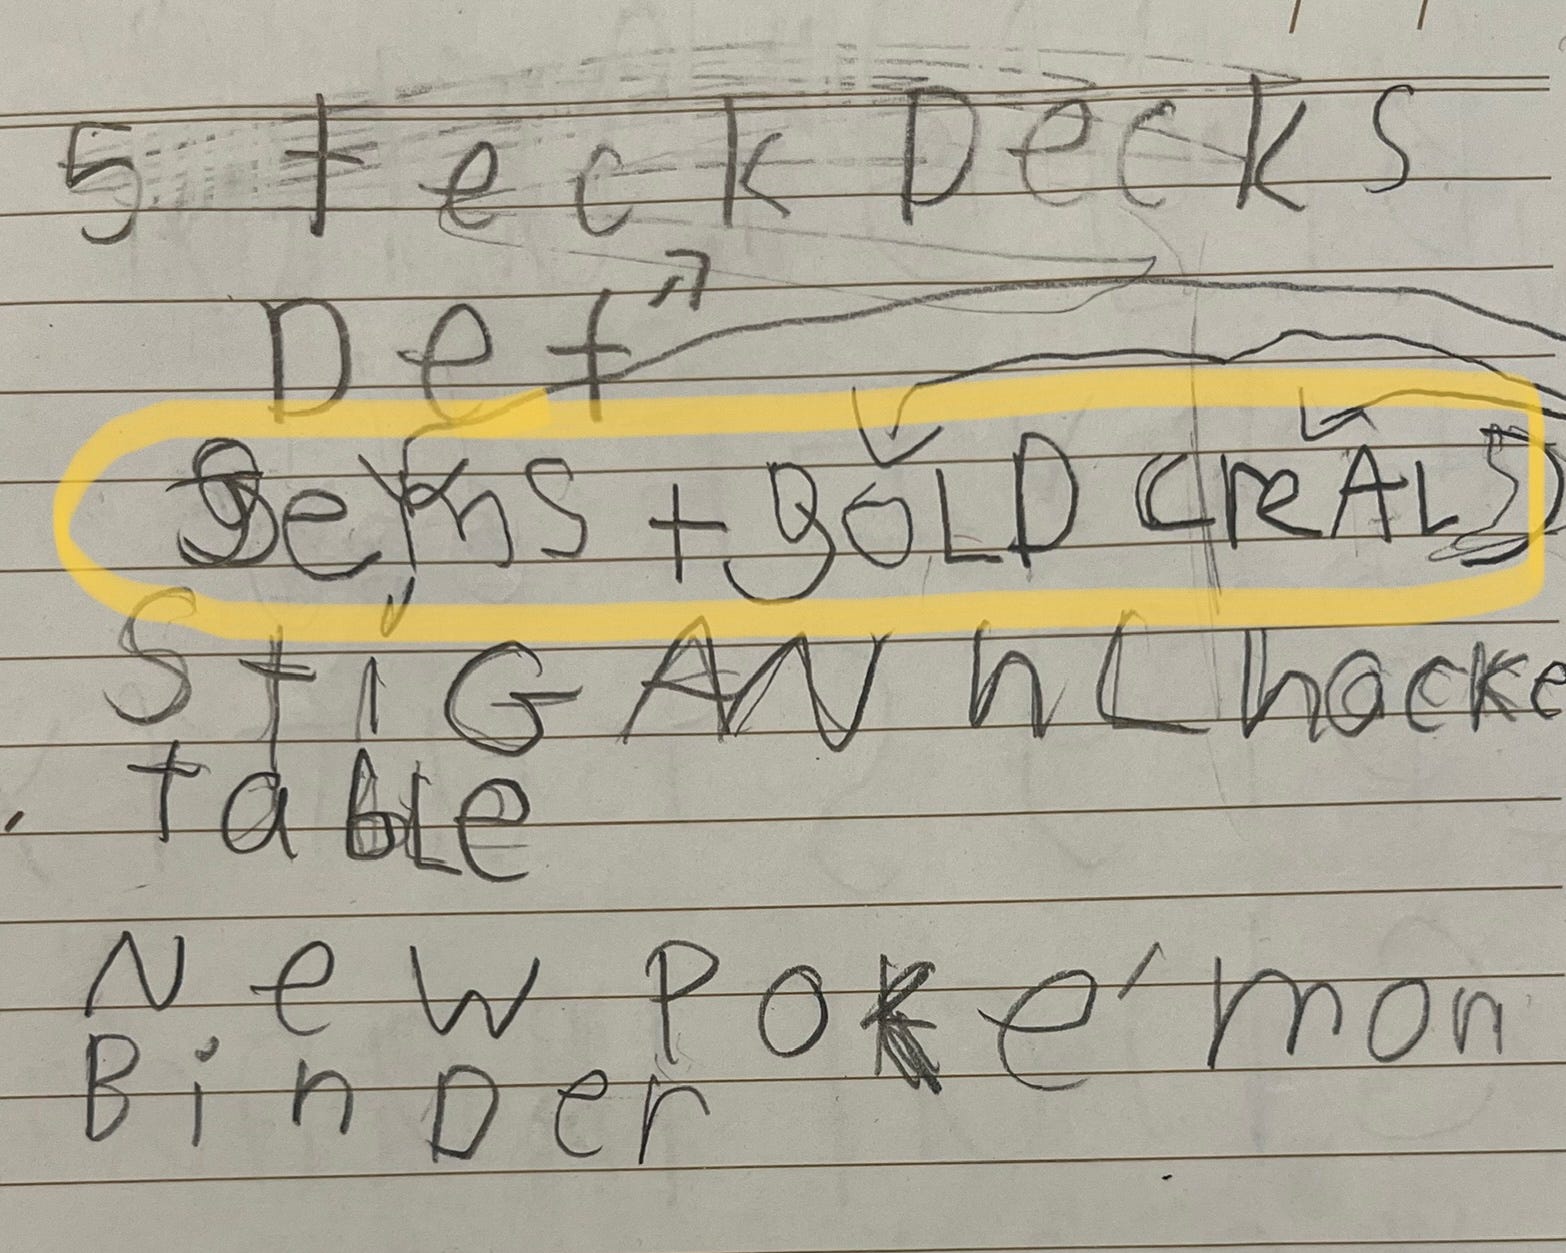 5 Teck Decks
Def
gems + gOLD (reAL)
StiGA NhL hocke
table
New Poke'mon
BinDer